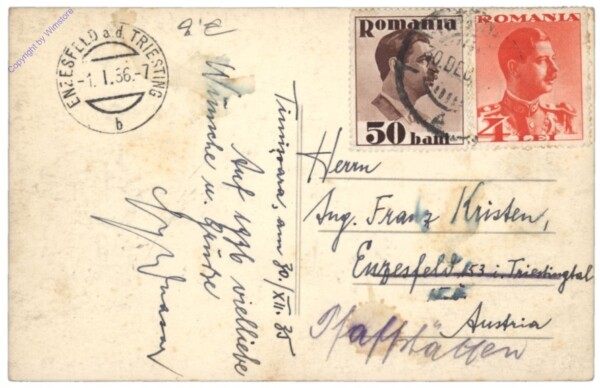 Copyright by Wimstore
ENZESFELD a.d. TRIESTING
-1.I.36.-7
b
Romania
50 bani
30.DEC
ROMANIA
4 LEI
Timișoara, am 30/XII. 35
Auf 1936 vielliebe
Wünsche u. Grüße
Herrn
Ing. Franz Kristen,
Enzesfeld 153 i. Triestingtal
Austria
Pfaffstätten